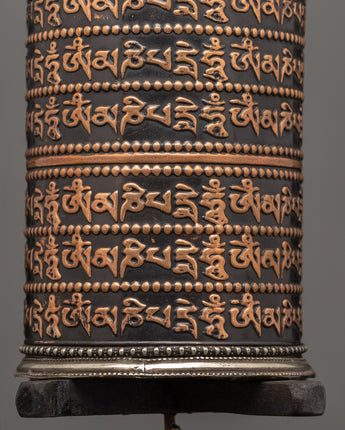 ཧཱུྃ་ཨོཾ་མ་ཎི་པ་དྨེ་ཧཱུྃ་ཨོཾ་མ་ཎི
ཧཱུྃ་ཨོཾ་མ་ཎི་པ་དྨེ་ཧཱུྃ་ཨོཾ་མ་ཎི
ཧཱུྃ་ཨོཾ་མ་ཎི་པ་དྨེ་ཧཱུྃ་ཨོཾ་མ་ཎི
ཧཱུྃ་ཨོཾ་མ་ཎི་པ་དྨེ་ཧཱུྃ་ཨོཾ་མ་ཎི
ཧཱུྃ་ཨོཾ་མ་ཎི་པ་དྨེ་ཧཱུྃ་ཨོཾ་མ་ཎི